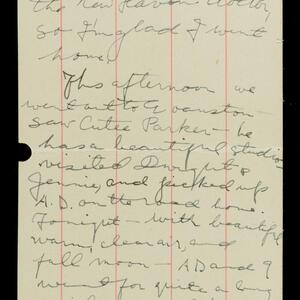 the New Haven
so I'm glad I went
home.
This afternoon we
went out to Evanston
saw Cutee Parker - he
has a beautiful studio
visited Dwight &
Jennie, and picked up
A.D. on the road home.
Tonight - with beautiful
warm, clear air, and
full moon - A.D. and I
went for quite a long